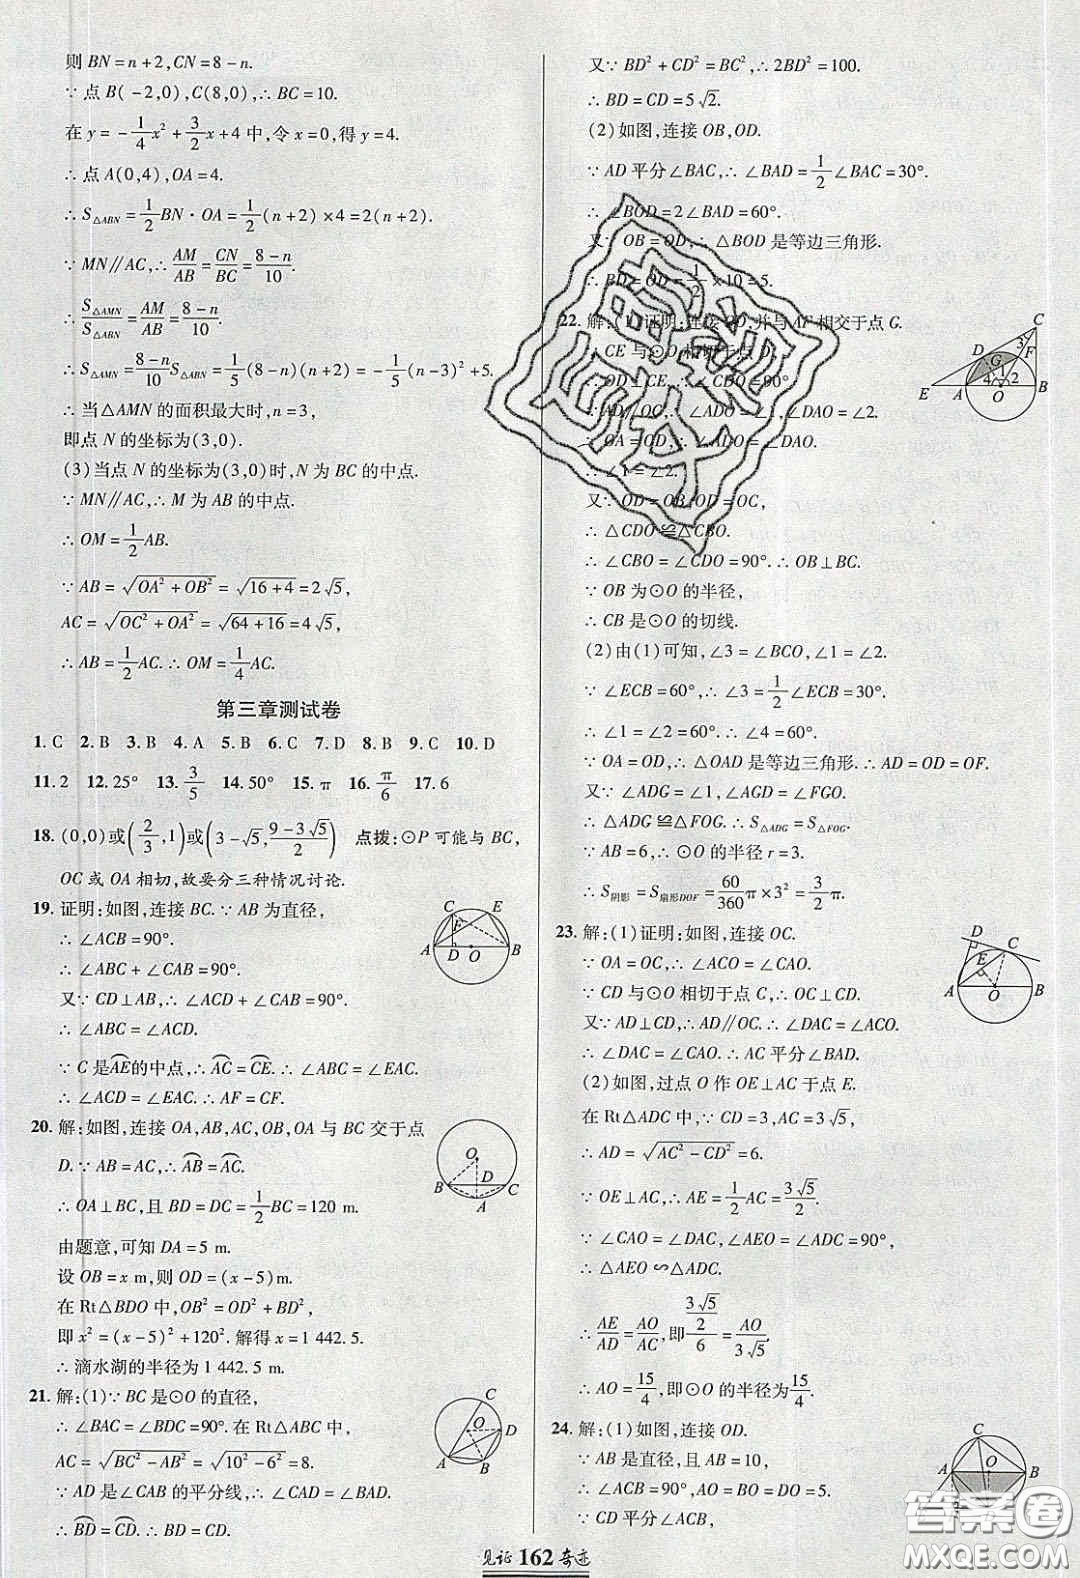 则 BN=n+2,CN=8-n.
∵点 B(-2,0),C(8,0),∴BC=10.
在 y=-1/4x²+3/2x+4 中,令 x=0,得 y=4.
∴点 A(0,4),OA=4.
∴S△ABN=1/2BN·OA=1/2(n+2)×4=2(n+2).
∵MN∥AC,∴AM/AB=CN/BC=(8-n)/10.
∴S△AMN/S△ABN=AM/AB=(8-n)/10.
∴S△AMN=(8-n)/10S△ABN=1/5(8-n)(n+2)=-1/5(n-3)²+5.
∴当△AMN 的面积最大时,n=3,
即点 N 的坐标为(3,0).
(3)当点 N 的坐标为(3,0)时,N 为 BC 的中点.
∵MN∥AC,∴M 为 AB 的中点.
∴OM=1/2AB.
∵AB=√(OA²+OB²)=√(16+4)=2√5,
AC=√(OC²+OA²)=√(64+16)=4√5,
∴AB=1/2AC.∴OM=1/4AC.
第三章测试卷
1. C 2. B 3. B 4. A 5. B 6. C 7. D 8. B 9. C 10. D
11. 2 12. 25° 13. 3/5 14. 50° 15. π 16. π/6 17. 6
18. (0,0)或(2/3,1)或(3-√5,(9-3√5)/2) 点拨:⊙P 可能与 BC,
OC 或 OA 相切,故要分三种情况讨论.
19. 证明:如图,连接 BC.∵AB 为直径,
∴∠ACB=90°.
∴∠ABC+∠CAB=90°.
又∵CD⊥AB,∴∠ACD+∠CAB=90°.
∴∠ABC=∠ACD.
∵C 是⌒AE的中点,∴⌒AC=⌒CE.∴∠ABC=∠EAC.
∴∠ACD=∠EAC.∴AF=CF.
C E F A D O B
20. 解:如图,连接 OA,AB,AC,OB,OA 与 BC 交于点
D.∵AB=AC,∴⌒AB=⌒AC.
∴OA⊥BC,且 BD=DC=1/2BC=120 m.
由题意,可知 DA=5 m.
设 OB=x m,则 OD=(x-5)m.
在 Rt△BDO 中,OB²=OD²+BD²,
即 x²=(x-5)²+120².解得 x=1 442.5.
∴滴水湖的半径为 1 442.5 m.
O B D C A
21. 解:(1)∵BC 是⊙O 的直径,
∴∠BAC=∠BDC=90°.在 Rt△ABC 中,
AC=√(BC²-AB²)=√(10²-6²)=8.
∵AD 是∠CAB 的平分线,∴∠CAD=∠BAD.
∴⌒BD=⌒CD.∴BD=CD.
C O D A B
又∵BD²+CD²=BC²,∴2BD²=100.
∴BD=CD=5√2.
(2)如图,连接 OB,OD.
∵AD 平分∠BAC,∴∠BAD=1/2∠BAC=30°.
∴∠BOD=2∠BAD=60°.
又∵OB=OD,∴△BOD 是等边三角形.
∴BD=OD=1/2×10=5.
22. 解:(1)证明:连接 OD,并与 AF 相交于点 G.
∵CE 与⊙O 相切于点 D,
∴OD⊥CE.∴∠CDO=90°.
∵AD∥OC,∴∠ADO=∠1,∠DAO=∠2.
∵OA=OD,∴∠ADO=∠DAO.
∴∠1=∠2.
又∵OD=OB,OC=OC,
∴△CDO≌△CBO.
∴∠CBO=∠CDO=90°.∴OB⊥BC.
∵OB 为⊙O 的半径,
∴CB 是⊙O 的切线.
C 3 D G F 4 1 2 E A O B
(2)由(1)可知,∠3=∠BCO,∠1=∠2.
∵∠ECB=60°,∴∠3=1/2∠ECB=30°.
∴∠1=∠2=60°.∴∠4=60°.
∵OA=OD,∴△OAD 是等边三角形.∴AD=OD=OF.
又∵∠ADG=∠1,∠AGD=∠FGO.
∴△ADG≌△FOG.∴S△ADG=S△FOG.
∵AB=6,∴⊙O 的半径 r=3.
∴S阴影=S扇形DOF=60/360π×3²=3/2π.
23. 解:(1)证明:如图,连接 OC.
∵OA=OC,∴∠ACO=∠CAO.
∵CD 与⊙O 相切于点 C,∴OC⊥CD.
又∵AD⊥CD,∴AD∥OC.∴∠DAC=∠ACO.
∴∠DAC=∠CAO.∴AC 平分∠BAD.
(2)如图,过点 O 作 OE⊥AC 于点 E.
在 Rt△ADC 中,∵CD=3,AC=3√5,
∴AD=√(AC²-CD²)=6.
∵OE⊥AC,∴AE=1/2AC=3√5/2.
∵∠CAO=∠DAC,∠AEO=∠ADC=90°,
∴△AEO∽△ADC.
∴AE/AD=AO/AC,即(3√5/2)/6=AO/3√5.
∴AO=15/4,即⊙O 的半径为15/4.
D C E A O B
24. 解:(1)如图,连接 OD.
∵AB 是直径,且 AB=10,
∴∠ACB=90°,AO=BO=DO=5.
∵CD 平分∠ACB,
C A O B
见证162奇迹
答案圈
MXQE.COM